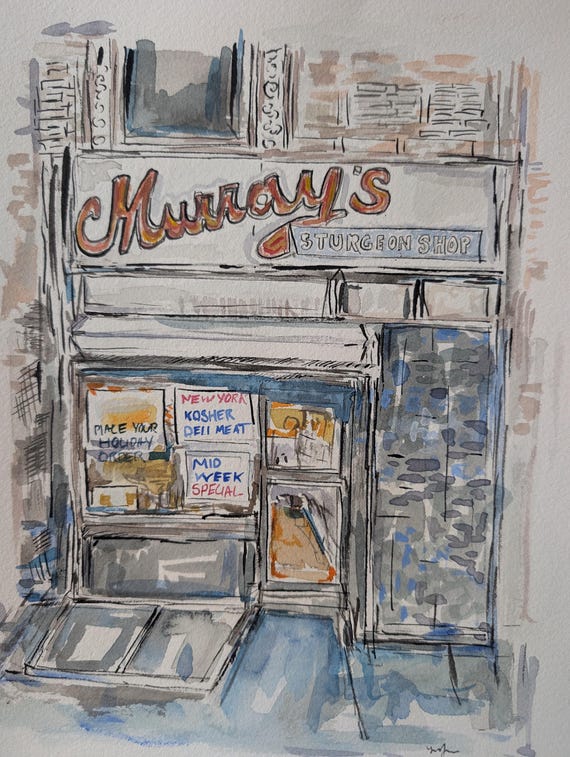 Murray's
STURGEON SHOP
PLACE YOUR
HOLIDAY
ORDER
NEW YORK
KOSHER
DELI MEAT
MID
WEEK
SPECIAL